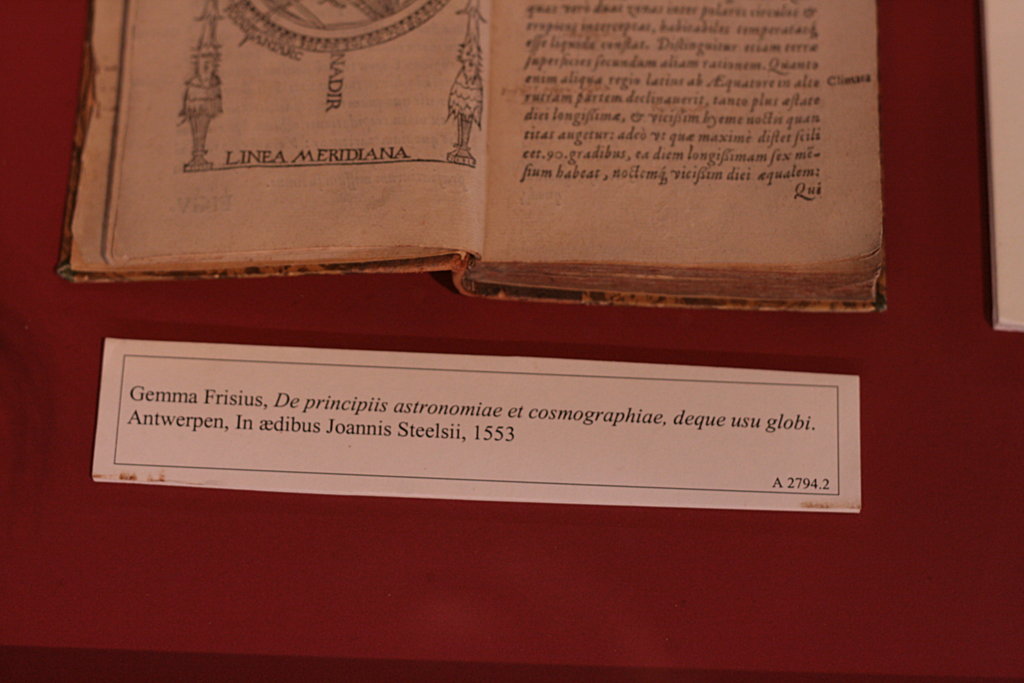 NADIR
LINEA MERIDIANA
quas verò duas zonas inter polares circulos &
erꝑtiens interceptas, habitabiles temperatasq́
esse liquidò constat. Distinguitur etiam terræ
superficies secundum aliam rationem. Quanto
enim aliqua regio latius ab Æquatore in alte
rutram partem declinauerit, tanto plus æstate
diei longissimæ, & vicissim hyeme noctis quan
titas augetur: adeò vt quæ maximè distet scili
cet .90. gradibus, ea diem longissimam sex mē-
sium habeat, noctemq́ vicissim diei æqualem:
Qui
Climata
Gemma Frisius, De principiis astronomiae et cosmographiae, deque usu globi.
Antwerpen, In ædibus Joannis Steelsii, 1553
A 2794.2